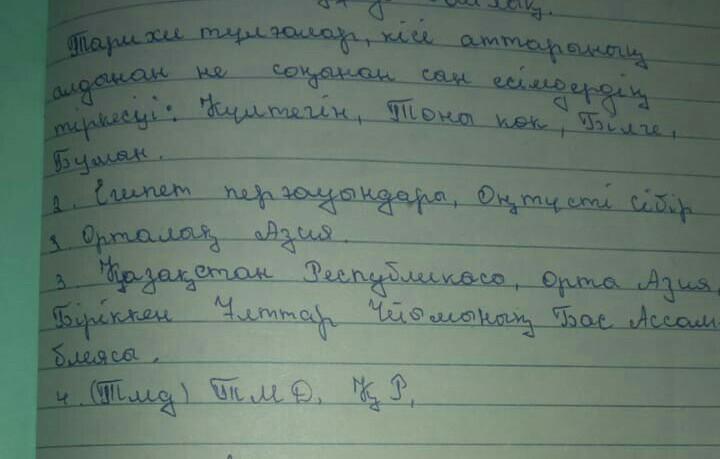 Тарихи тұлғалар, кісі аттарының
алдынан не соңынан сан есімдердің
тіркесуі: Күлтегін, Тоны көк, Білге,
Буман.
2. Египет перғауындары, Оңтүсті сібір
Орталық Азия.
3. Қазақстан Республикасо, Орта Азия,
Біріккен Ұлттар Ұйымының Бас Ассам
блеясы.
4. (Тмд) ТМД, ҚР,